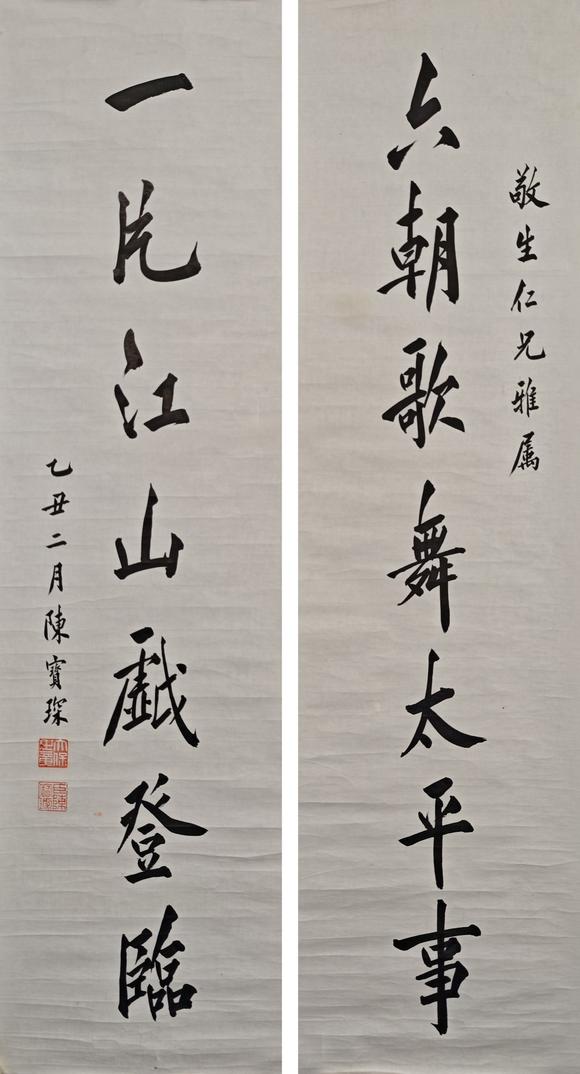 敬生仁兄雅属
六朝歌舞太平事
一片江山戱登臨
乙丑二月陳寶琛